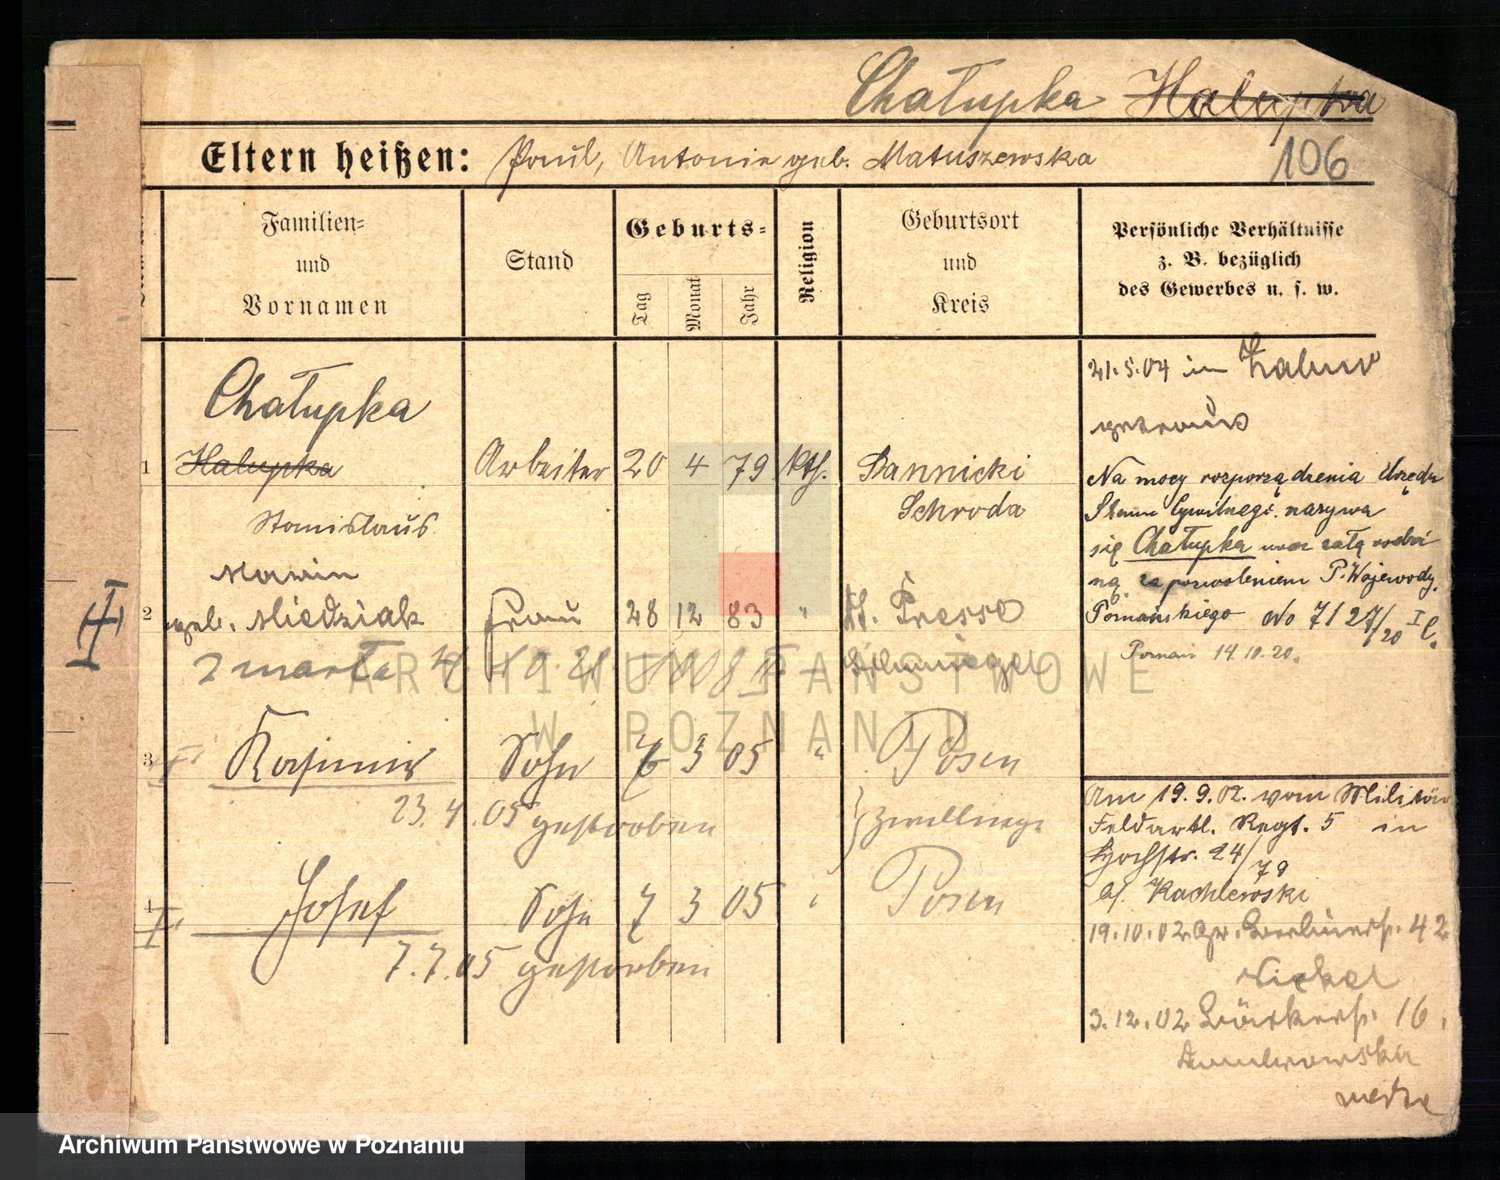 Chałupka Halupka
Eltern heißen: Paul, Antonie geb. Matuszewska
106
Familien-
und
Vornamen
Stand
Geburts-
Tag
Monat
Jahr
Religion
Geburtsort
und
Kreis
Persönliche Verhältnisse
z. B. bezüglich
des Gewerbes u. s. w.
Chałupka
1 Halupka Arbeiter 20 4 79 kth. Bannicki
Stanislaus Schroda
Maria
2 geb. Miedziak Frau 28 12 83 " Kl. Kreis
2 marta
3 Kasimir Sohn 7 3 05 " Posen
23.4.05 gestorben
Zwillinge
4 Josef Sohn 7 3 05 " Posen
7.7.05 gestorben
21.5.04 in
getraut
Na mocy rozporządzenia Urzędu
Stanu Cywilnego nazywa
się Chałupka wraz całą rodzi-
ną za pozwoleniem P. Wojewody
Poznańskiego No 7127/20 I C.
Poznań 14.10.20.
Am 19.9.02. vom Militär
Feldartl. Regt. 5 in
Hochstr. 24/79
b/. Kachlewski
19.10.02 Gr. Berlinerstr. 42
Nickel
3.12.02 Bäckerstr. 16.
Dombrowska
ARCHIWUM PAŃSTWOWE
W POZNANIU
Archiwum Państwowe w Poznaniu